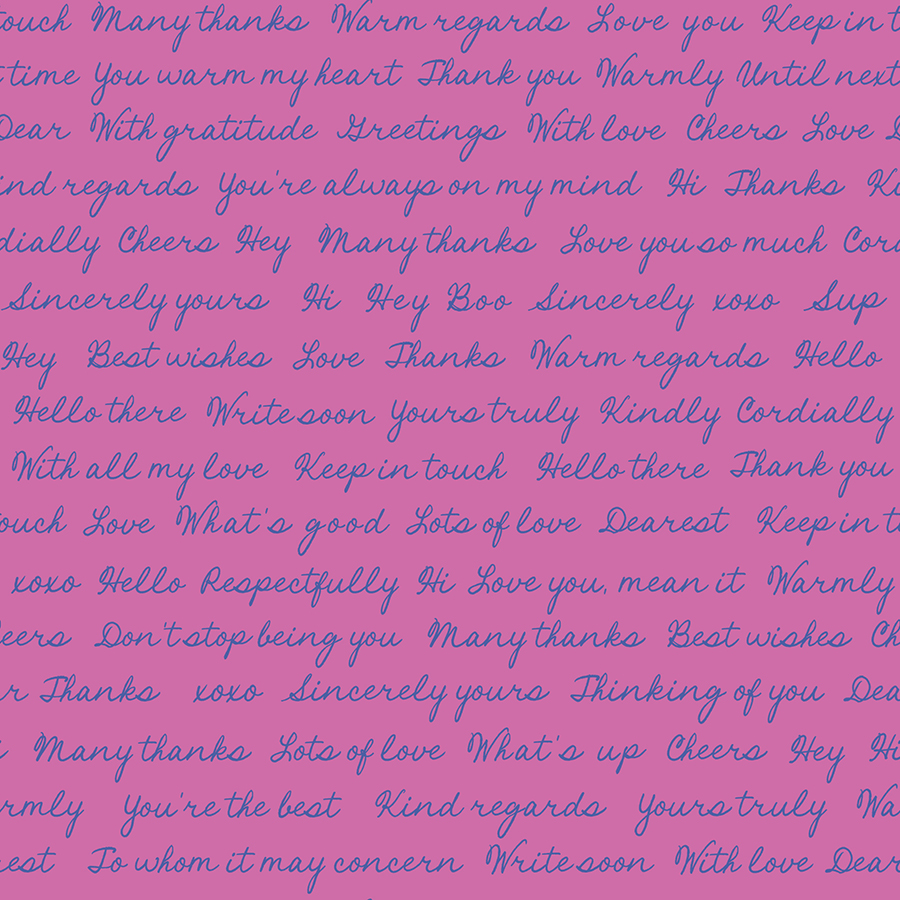 touch Many thanks Warm regards Love you Keep in t
time You warm my heart Thank you Warmly Until next
Dear With gratitude Greetings With love Cheers Love D
ind regards You're always on my mind Hi Thanks Ki
dially Cheers Hey Many thanks Love you so much Cord
Sincerely yours Hi Hey Boo Sincerely xoxo Sup
Hey Best wishes Love Thanks Warm regards Hello
Hello there Write soon Yours truly Kindly Cordially
With all my love Keep in touch Hello there Thank you
ouch Love What's good Lots of love Dearest Keep in t
xoxo Hello Respectfully Hi Love you, mean it Warmly
eers Don't stop being you Many thanks Best wishes Ch
r Thanks xoxo Sincerely yours Thinking of you Dea
Many thanks Lots of love What's up Cheers Hey Hi
rmly You're the best Kind regards Yours truly Wa
est To whom it may concern Write soon With love Dear